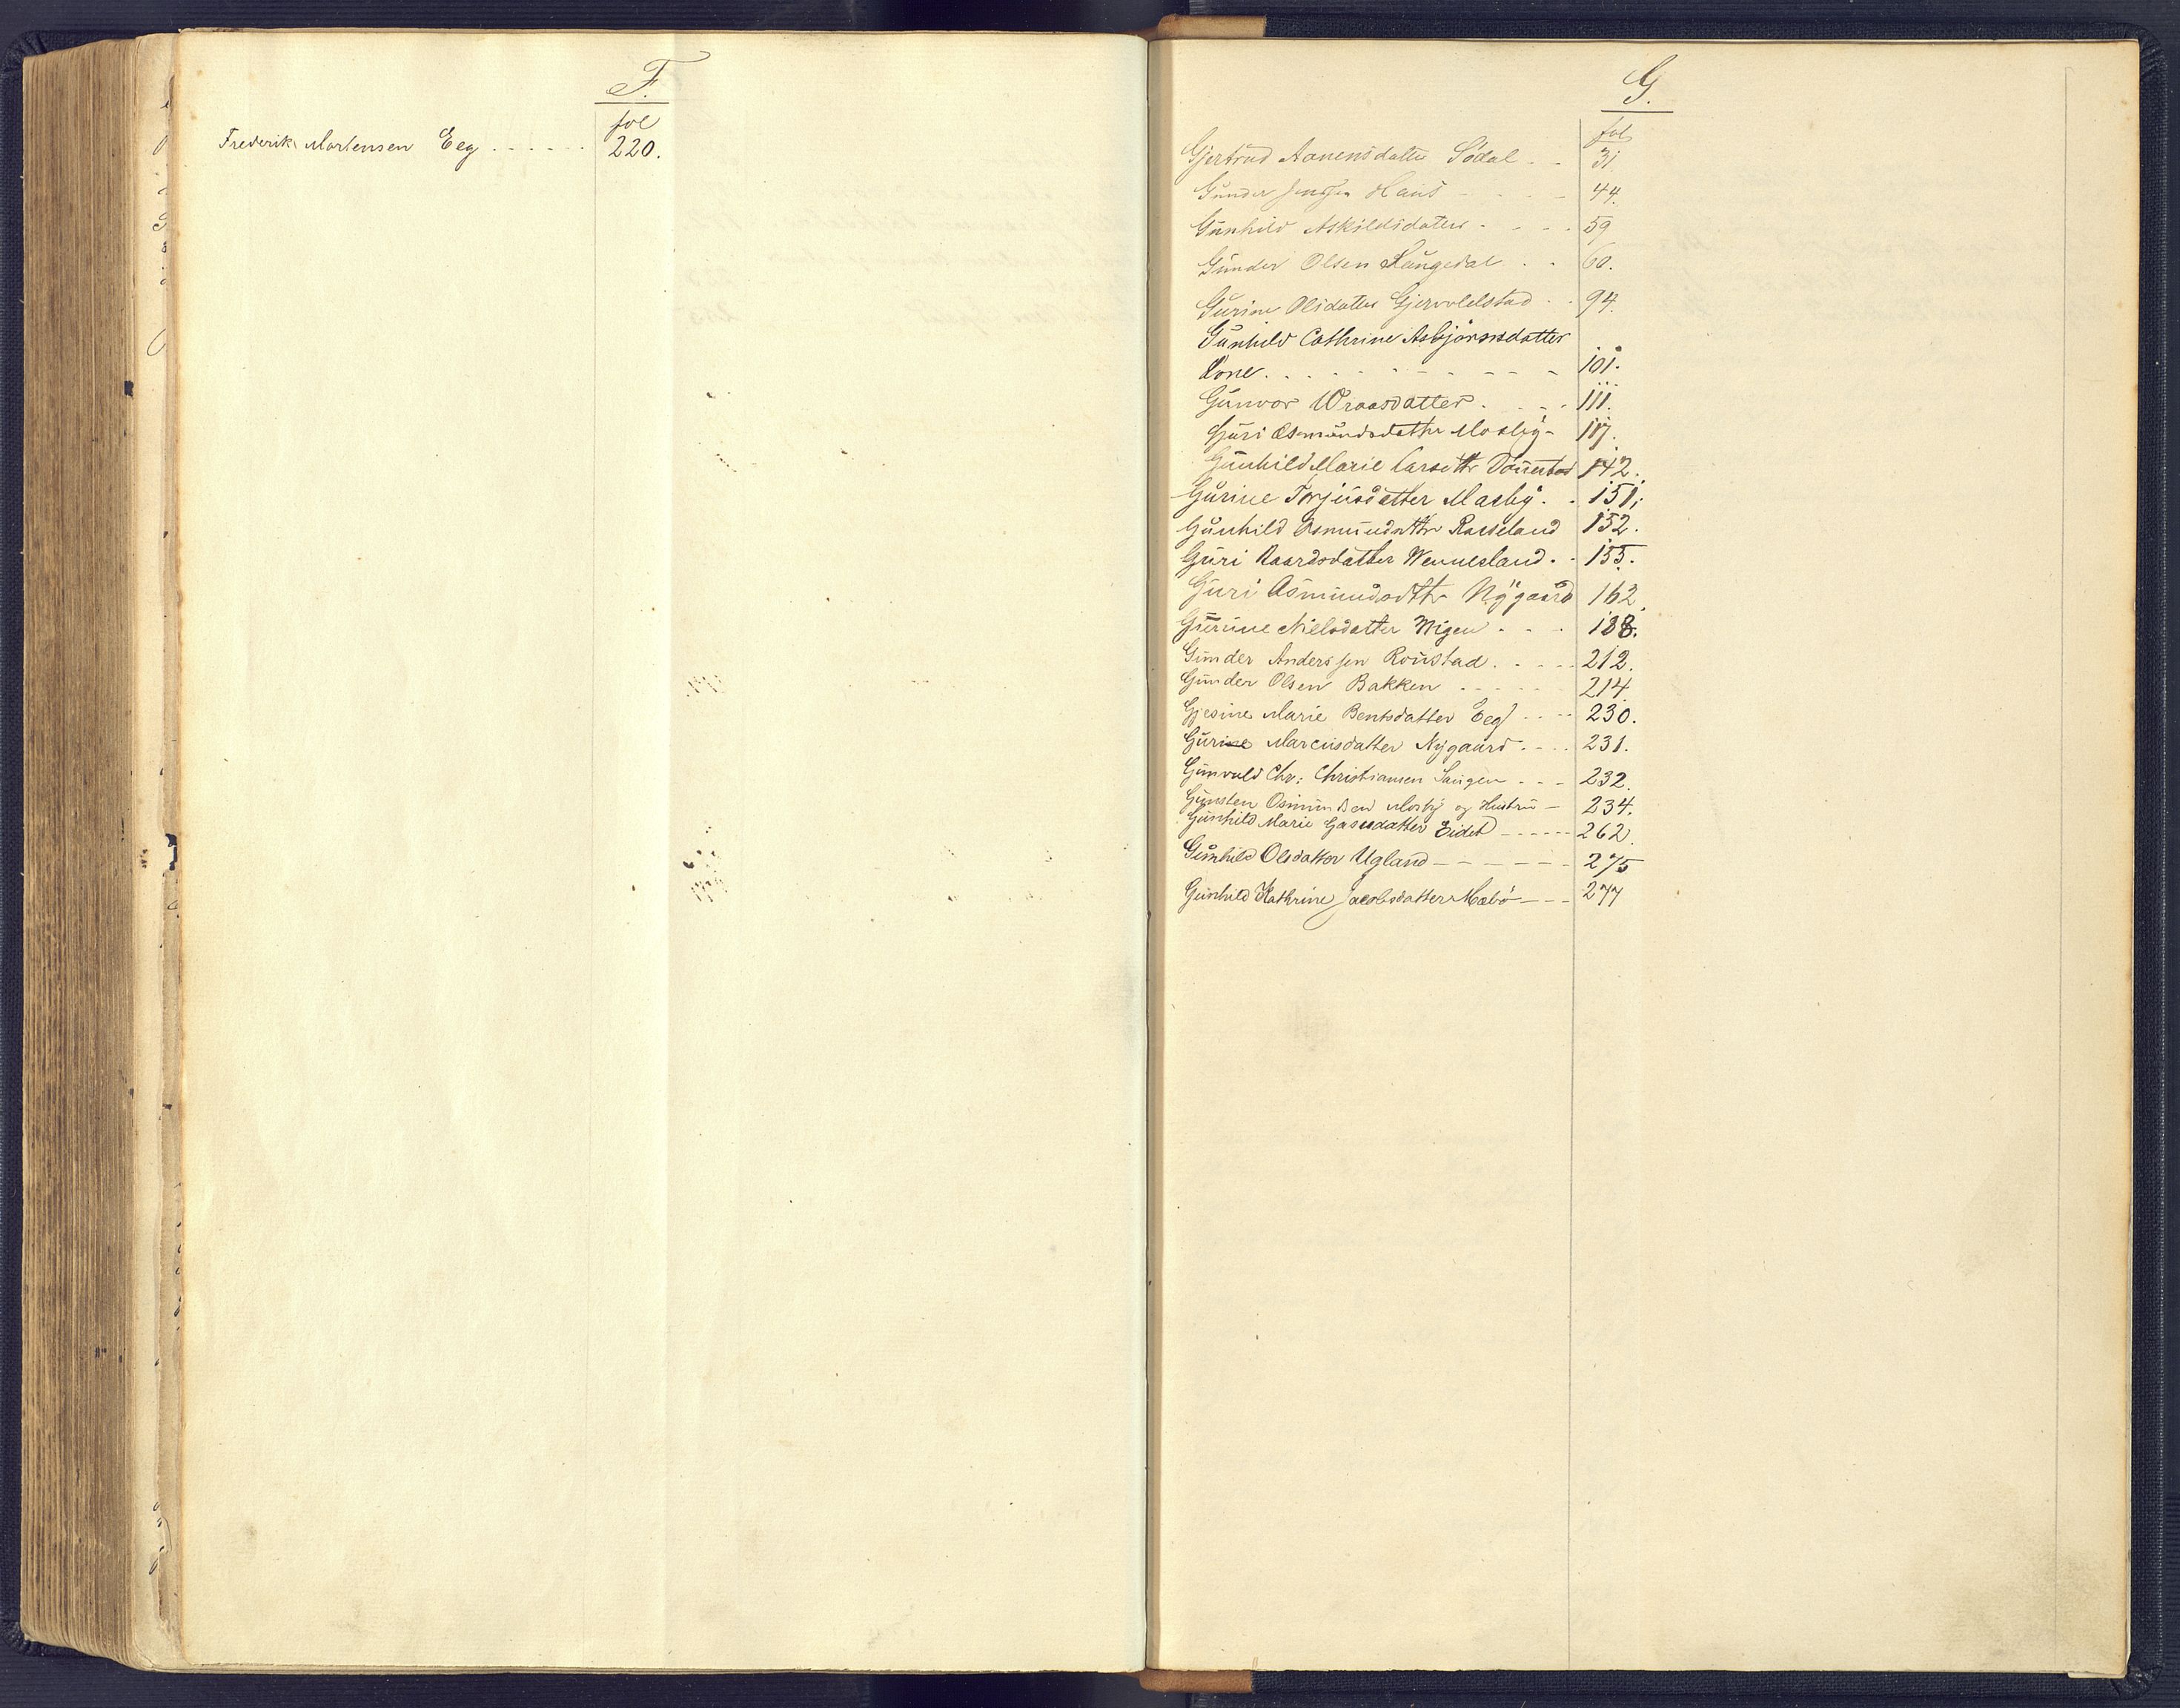 F.
fol
Frederik Mortensen Eeg . . . . . . 220.
G.
fol
Gjertrud Aanensdatter Södal . . 31.
Gunder Jenssen Haus - - - - 44.
Gunhild Askildsdatter - - - . 59
Gunder Olsen Langedal . . 60.
Gurine Olsdatter Gjervoldstad . . 94.
Gunhild Cathrine Asbjörnsdatter
Lone . . . - - - - - - 101.
Gunvor Wraasdatter . . - . 111.
Guri Osmundsdatter Mosby - 117.
Gunhild Marie Larsdttr Dönnestad 142.
Gurine Torjusdatter Mosby . . 151.
Gunhild Osmundsdttr Rosseland 152.
Guri Kaardsdatter Wennesland . . 155.
Guri Asmundsdttr Nygaard 162.
Gurine Nielsdatter Wigen . . . 188.
Gunder Anderssen Roustad . . . - - 212.
Gunder Olsen Bakken . . - - - 214.
Gjesine Marie Bentsdatter Eeg . . - - 230.
Gurine Marcusdatter Nygaard . - . . 231.
Gunvald Chr: Christiansen Saugen . - - 232.
Gunsten Osmundsen Mosby og Hustru - 234.
Gunhild Marie Gasusdatter Eidet - - - - - - 262.
Gunhild Olsdatter Ugland - - - - - - 275
Gunhild Kathrine Jacobsdatter Mæbö - - - 277